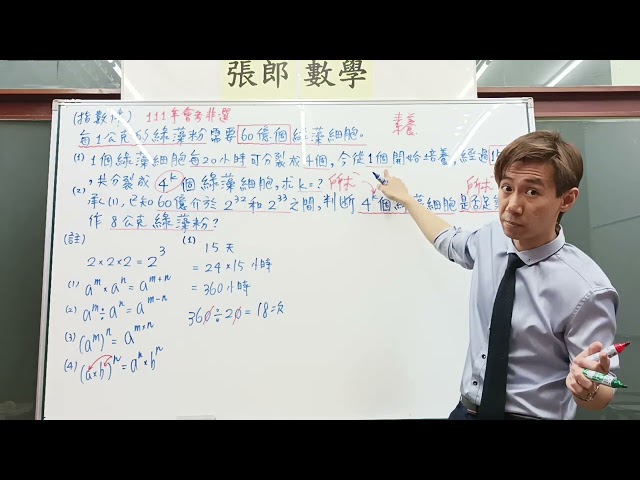 張郎 數學
(指數律) 111年會考非選 素養
每1公克的綠藻粉需要60億個綠藻細胞。
(1) 1個綠藻細胞每20小時可分裂成4個,今從1個開始培養,經過15
,共分裂成 4^k 個綠藻細胞,求k=? 所求 所求
(2) 承(1),已知60億介於 2^32 和 2^33 之間,判斷 4^k 個綠藻細胞是否足
作 8公克 綠藻粉?
(註)
2×2×2=2^3
(1) a^m×a^n=a^{m+n}
(2) a^m÷a^n=a^{m-n}
(3) (a^m)^n=a^{m×n}
(4) (a×b)^n=a^n×b^n
(1) 15天
=24×15小時
=360小時
360÷20=18次